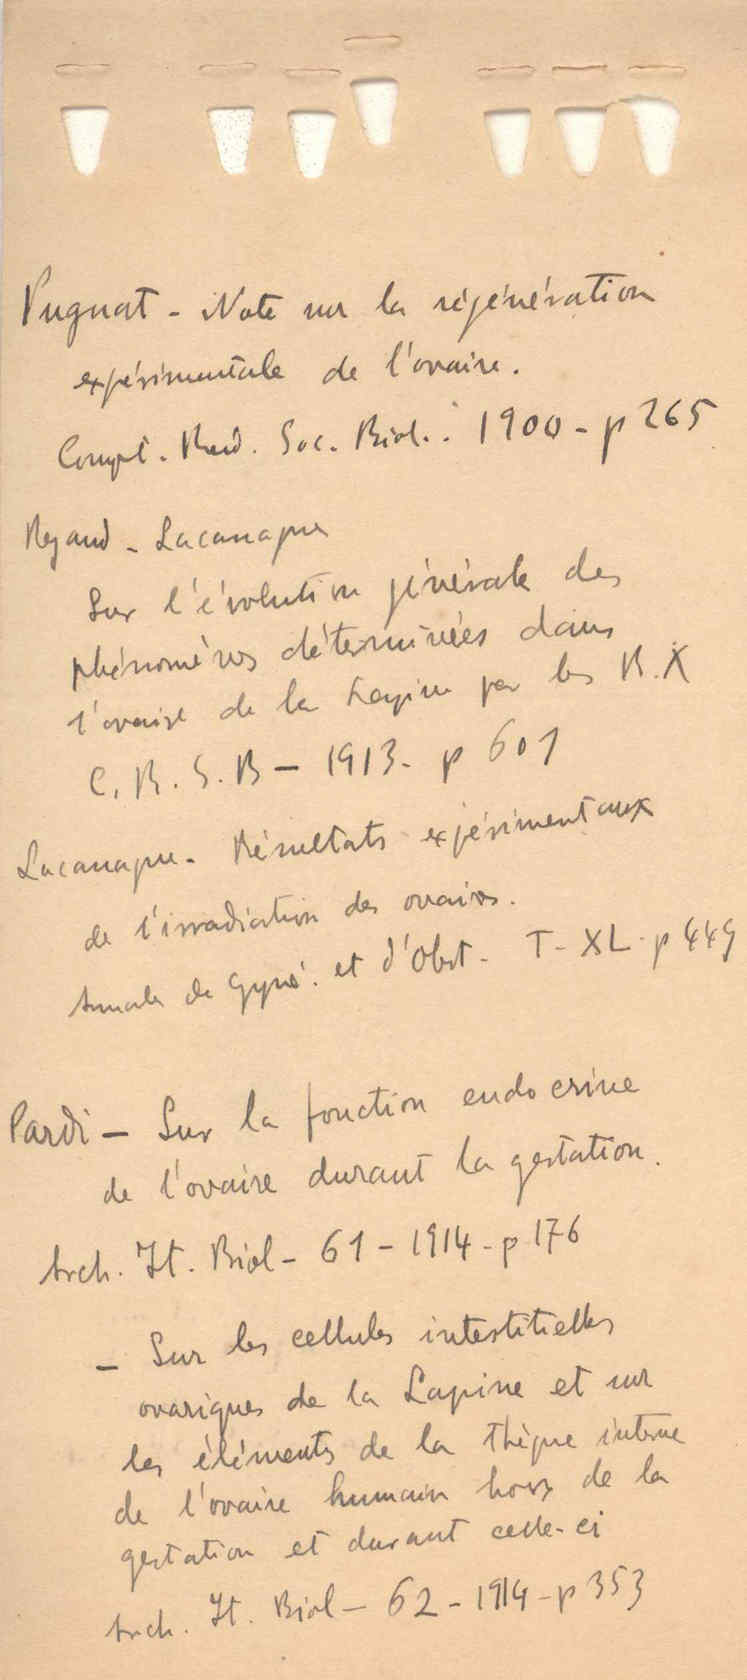 Pugnat - Note sur la régénération
expérimentale de l'ovaire.
Compt. Rend. Soc. Biol. : 1900 - p 265
Regaud - Lacassagne
Sur l'évolution générale des
phénomènes déterminées dans
l'ovaire de la Lapine par les R.X
C. R. S. B - 1913 - p 601
Lacassagne - Résultats expérimentaux
de l'irradiation des ovaires.
Annales de Gyné. et d'Obst - T - XL - p 449
Pardi - Sur la fonction endocrine
de l'ovaire durant la gestation.
Arch. It. Biol - 61 - 1914 - p 176
- Sur les cellules interstitielles
ovariques de la Lapine et sur
les éléments de la thèque interne
de l'ovaire humain hors de la
gestation et durant celle-ci
Arch. It. Biol - 62 - 1914 - p 353